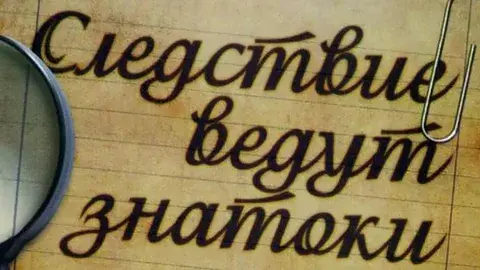 Следствие
ведут
знатоки